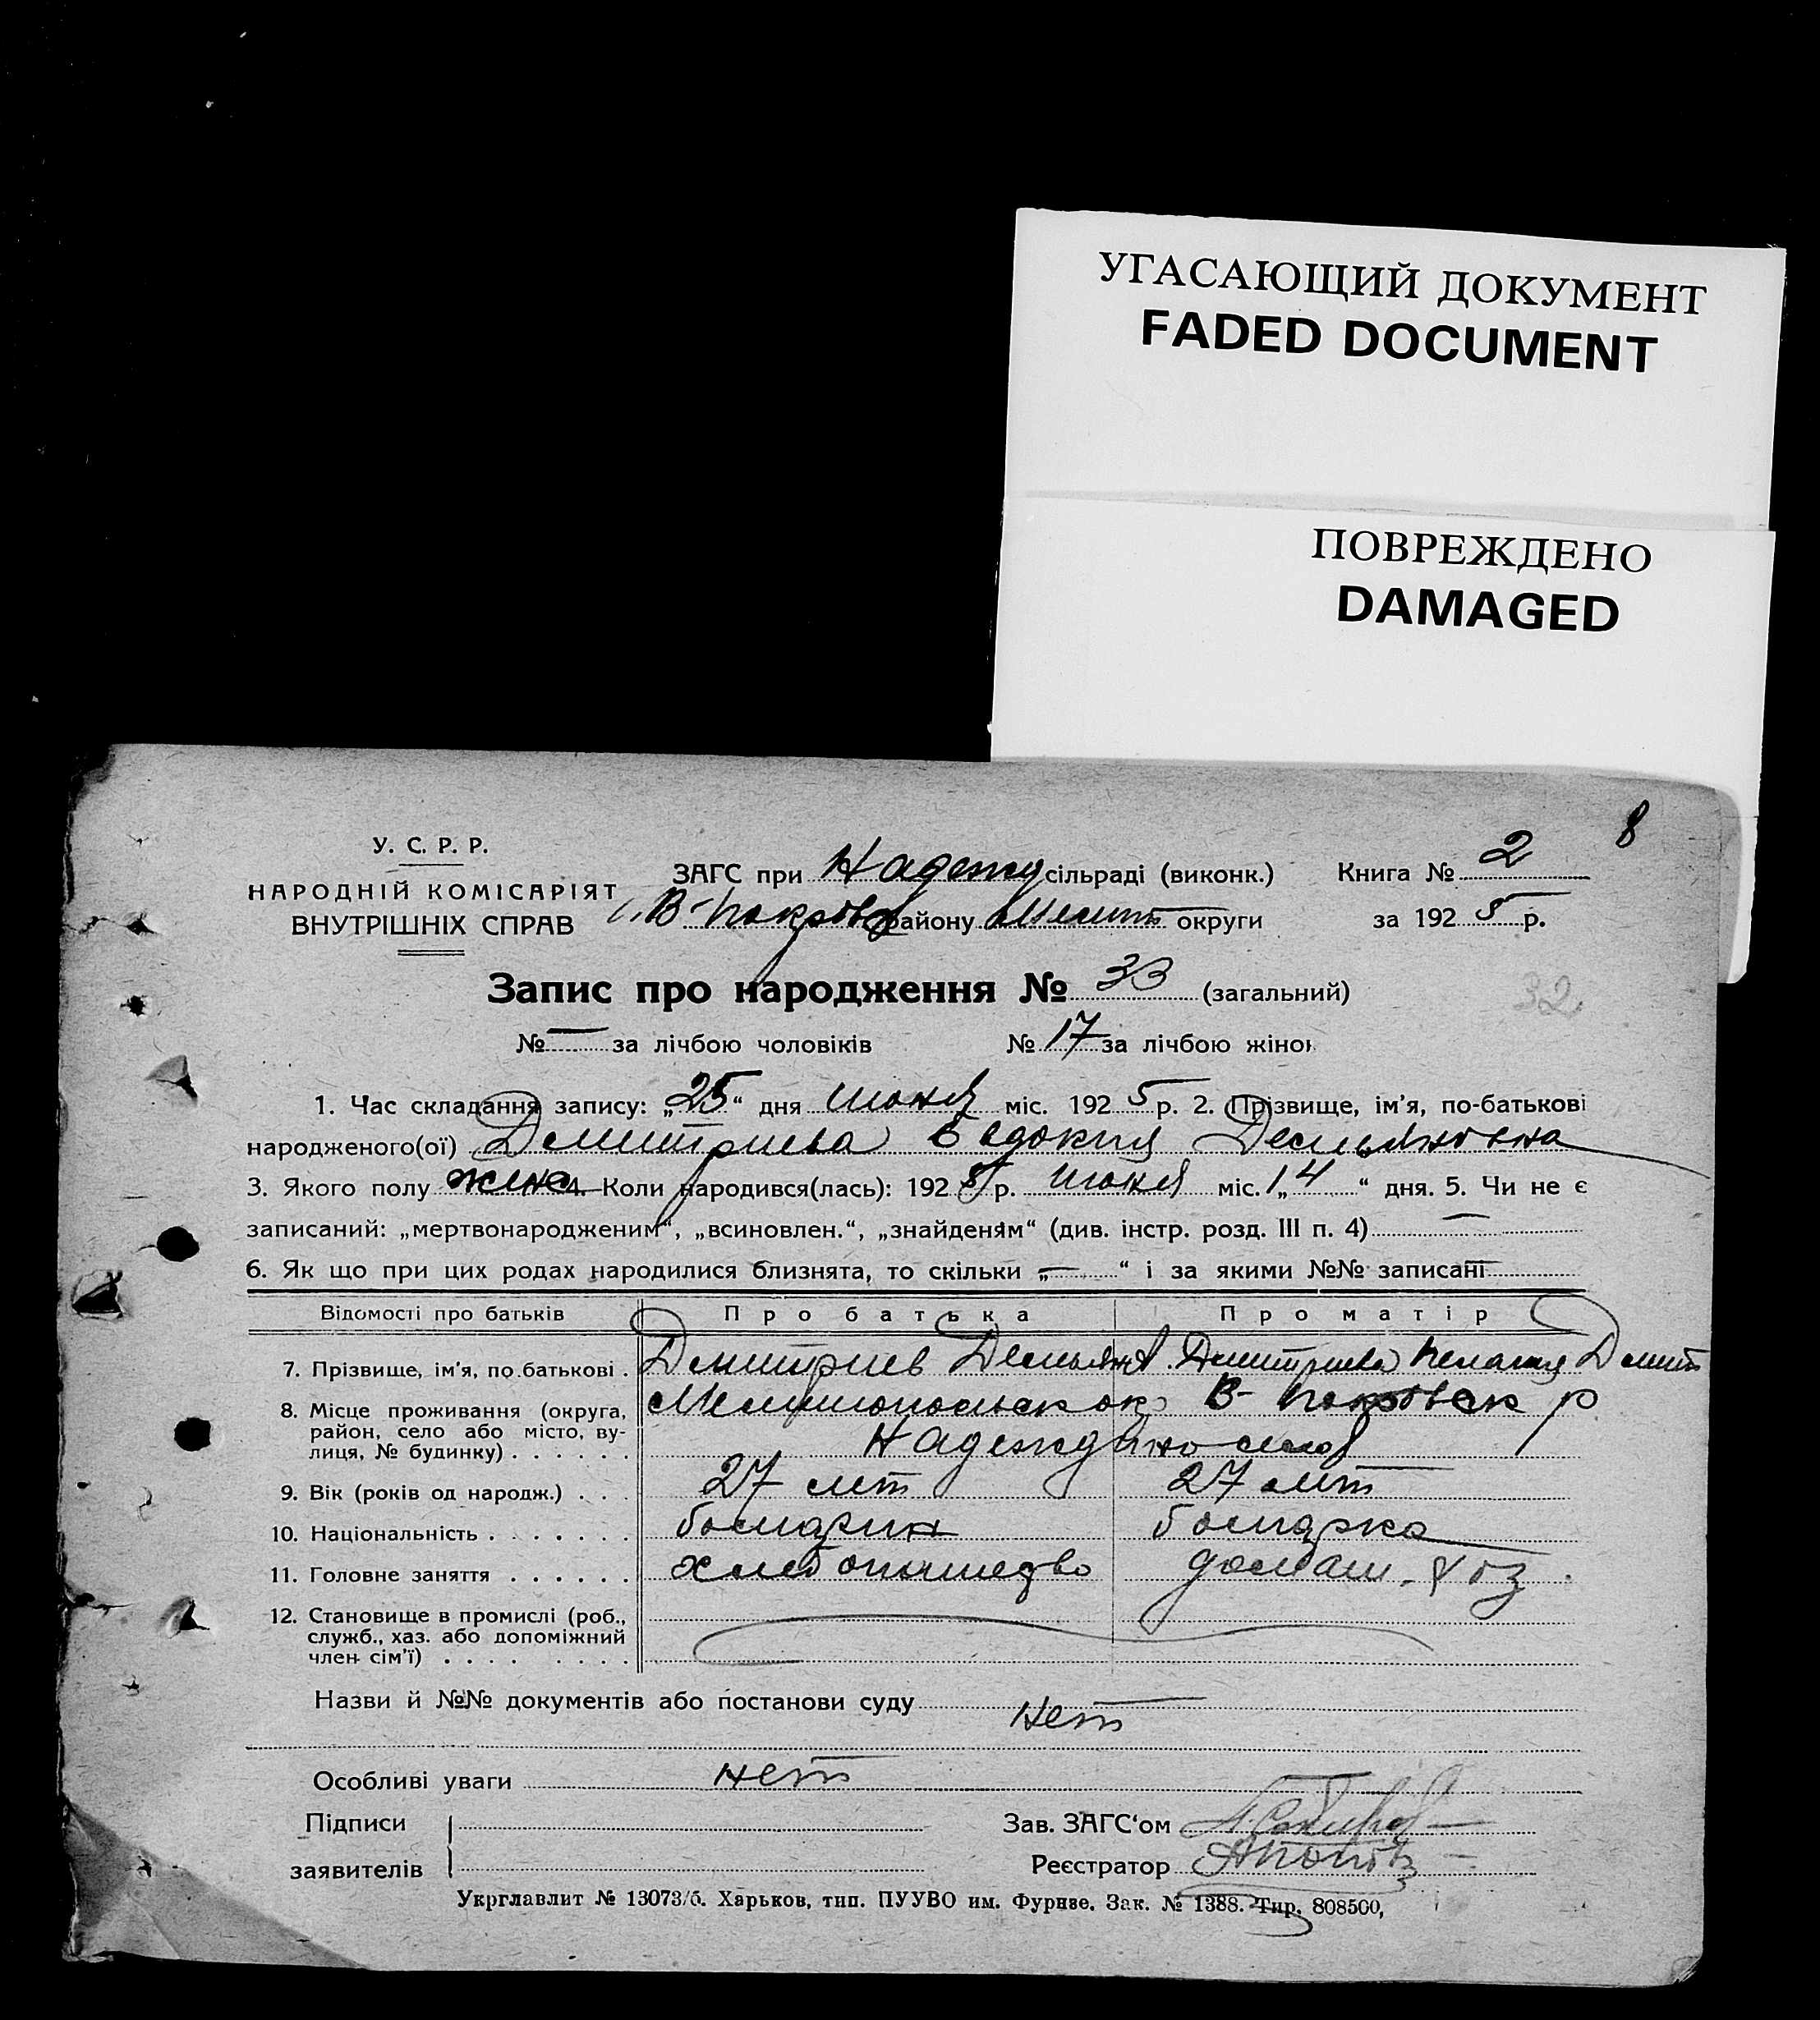 УГАСАЮЩИЙ ДОКУМЕНТ
FADED DOCUMENT
ПОВРЕЖДЕНО
DAMAGED
8
У. С. Р. Р.
НАРОДНІЙ КОМІСАРІЯТ
ВНУТРІШНІХ СПРАВ
ЗАГС при Надежд сільраді (виконк.) Книга № 2
В-Покров району Мелит округи за 1925 р.
Запис про народження № 33 (загальний)
32
№ — за лічбою чоловіків № 17 за лічбою жінок
1. Час складання запису: „25“ дня июня міс. 1925 р. 2. Прізвище, ім'я, по-батькові
народженого(ої) Дмитриева Евдокия Демьяновна
3. Якого полу жен 4. Коли народився(лась): 1925 р. июня міс. „14“ дня. 5. Чи не є
записаний: „мертвонародженим“, „всиновлен.“, „знайденям“ (див. інстр. розд. III п. 4) —
6. Як що при цих родах народилися близнята, то скільки „—“ і за якими №№ записані —
Відомості про батьків Про батька Про матір
7. Прізвище, ім'я, по.батькові . Дмитриев Демьян Дмитриева Пелагия Дмит
8. Місце проживання (округа, Мелитопольск ок В-Покровск р
район, село або місто, ву-
лиця, № будинку) . . . . . . Надеждино село
9. Вік (років од народж.) . . . 27 лет 27 лет
10. Національність . . . . . . . болгарин болгарка
11. Головне заняття . . . . . . хлебопашество домаш. хоз.
12. Становище в промислі (роб.,
служб., хаз. або допоміжний
член сім'ї) . . . . . . . .
Назви й №№ документів або постанови суду нет
Особливі уваги нет
Підписи Зав. ЗАГС‘ом
заявителів Реєстратор
Укрглавлит № 13073/б. Харьков, тип. ПУУВО им. Фрунзе. Зак. № 1388. Тир. 808500,